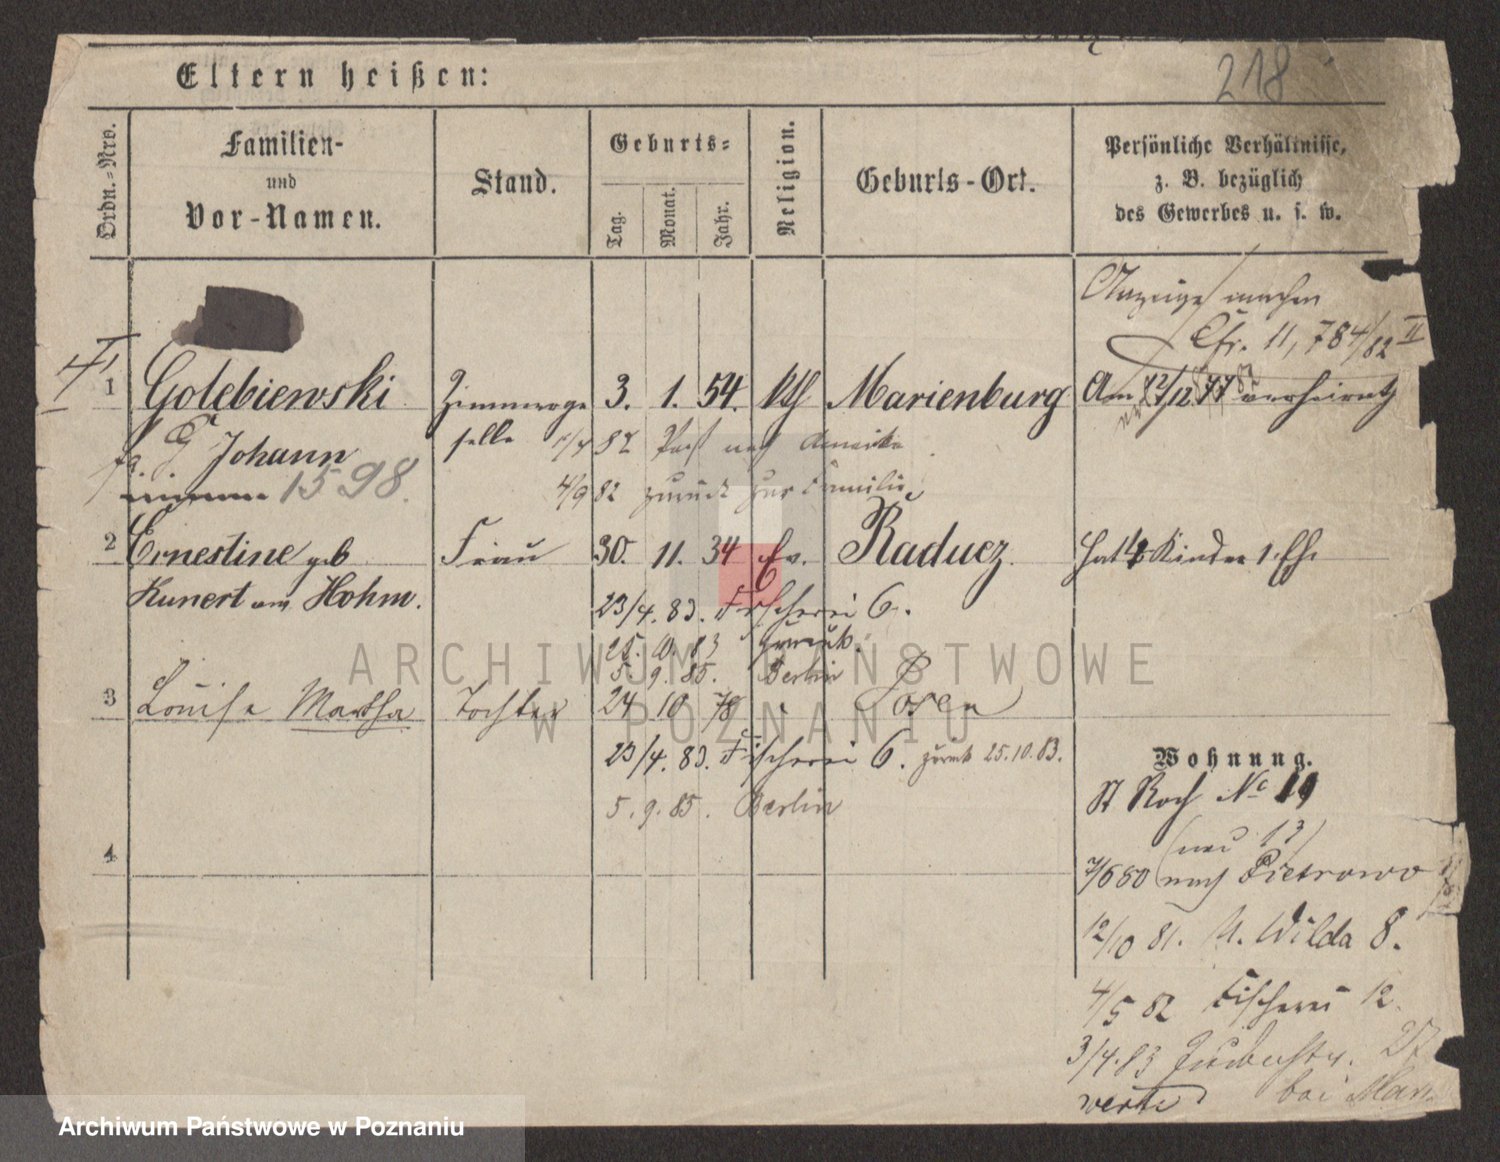 218
Eltern heißen:
Ordn.=Nro.
Familien-
und
Vor-Namen.
Stand.
Geburts=
Tag.
Monat.
Jahr.
Religion.
Geburts-Ort.
Persönliche Verhältnisse,
z. B. bezüglich
des Gewerbes u. s. w.
Anzeige machen
Cfr. 11, 784/82 II
1 Golebiewski Zimmerge 3. 1. 54. kth Marienburg Am 12/12 77 verheirath
Johann selle 82 nach Amerika
1598. 4/9 82 zurück zur Familie
2 Ernestine geb Frau 30. 11. 34 Ev. Raducz. hat Kinder 1. Ehe
Kunert am Hohm.
23/4. 83. Fischerei 6.
25. 10. 83 zurück.
5. 9. 85. Berlin
3 Louise Martha Tochter 24 10 78 " Posen
23/4. 83. Fischerei 6. zurück 25.10.83.
5. 9. 85. Berlin
4
Wohnung.
St Roch No 19
(neu 13)
7/6 80 nach Pietrowo
12/10 81. U. Wilda 8.
4/5 82 Fischerei 12
3/4.83 27
bei
ARCHIWUM PAŃSTWOWE
W POZNANIU
Archiwum Państwowe w Poznaniu